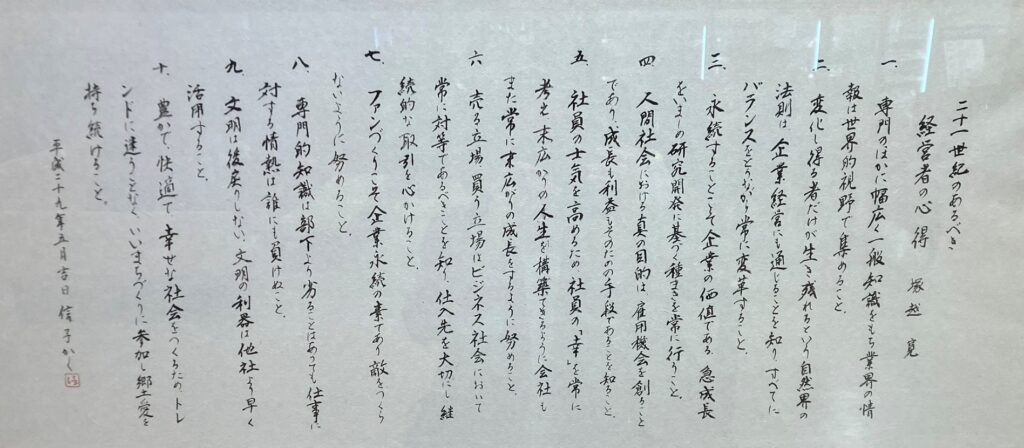 二十一世紀のあるべき
経営者の心得　塚越　寛
一、専門のほかに幅広く一般知識をもち業界の情
報は世界的視野で集めること。
二、変化し得る者だけが生き残れるという自然界の
法則は企業経営にも通じることを知りすべてに
バランスをとりながら常に変革すること。
三、永続することこそ企業の価値である。急成長
をいましめ研究開発に基づく種まきを常に行うこと。
四、人間社会における真の目的は雇用機会を創ること
であり、成長も利益もそのための手段であることを知ること。
五、社員の士気を高めるため社員の「幸」を常に
考え末広がりの人生を構築できるように会社も
また常に末広がりの成長をするように努めること。
六、売る立場買う立場はビジネス社会において
常に対等であるべきことを知り、仕入先を大切にし継
続的な取引を心がけること。
七、ファンづくりこそ企業永続の素であり敵をつくら
ないように努めること。
八、専門的知識は部下より劣ることはあっても仕事に
対する情熱は誰にも負けぬこと。
九、文明は後戻りしない。文明の利器は他社より早く
活用すること。
十、豊かで、快適で、幸せな社会をつくるため、トレ
ンドに迷うことなくいいまちづくりに参加し郷土愛を
持ち続けること。
平成二十九年五月吉日　信子かく